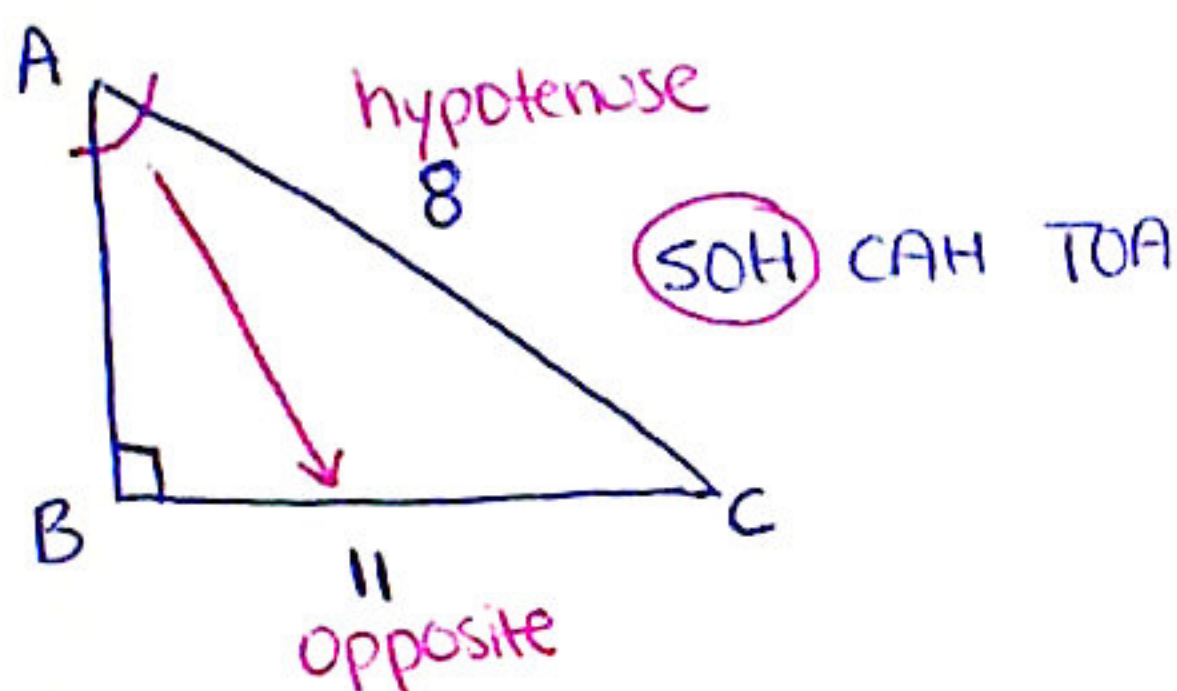 A
hypotenuse
8
SOH CAH TOA
B
C
11
opposite